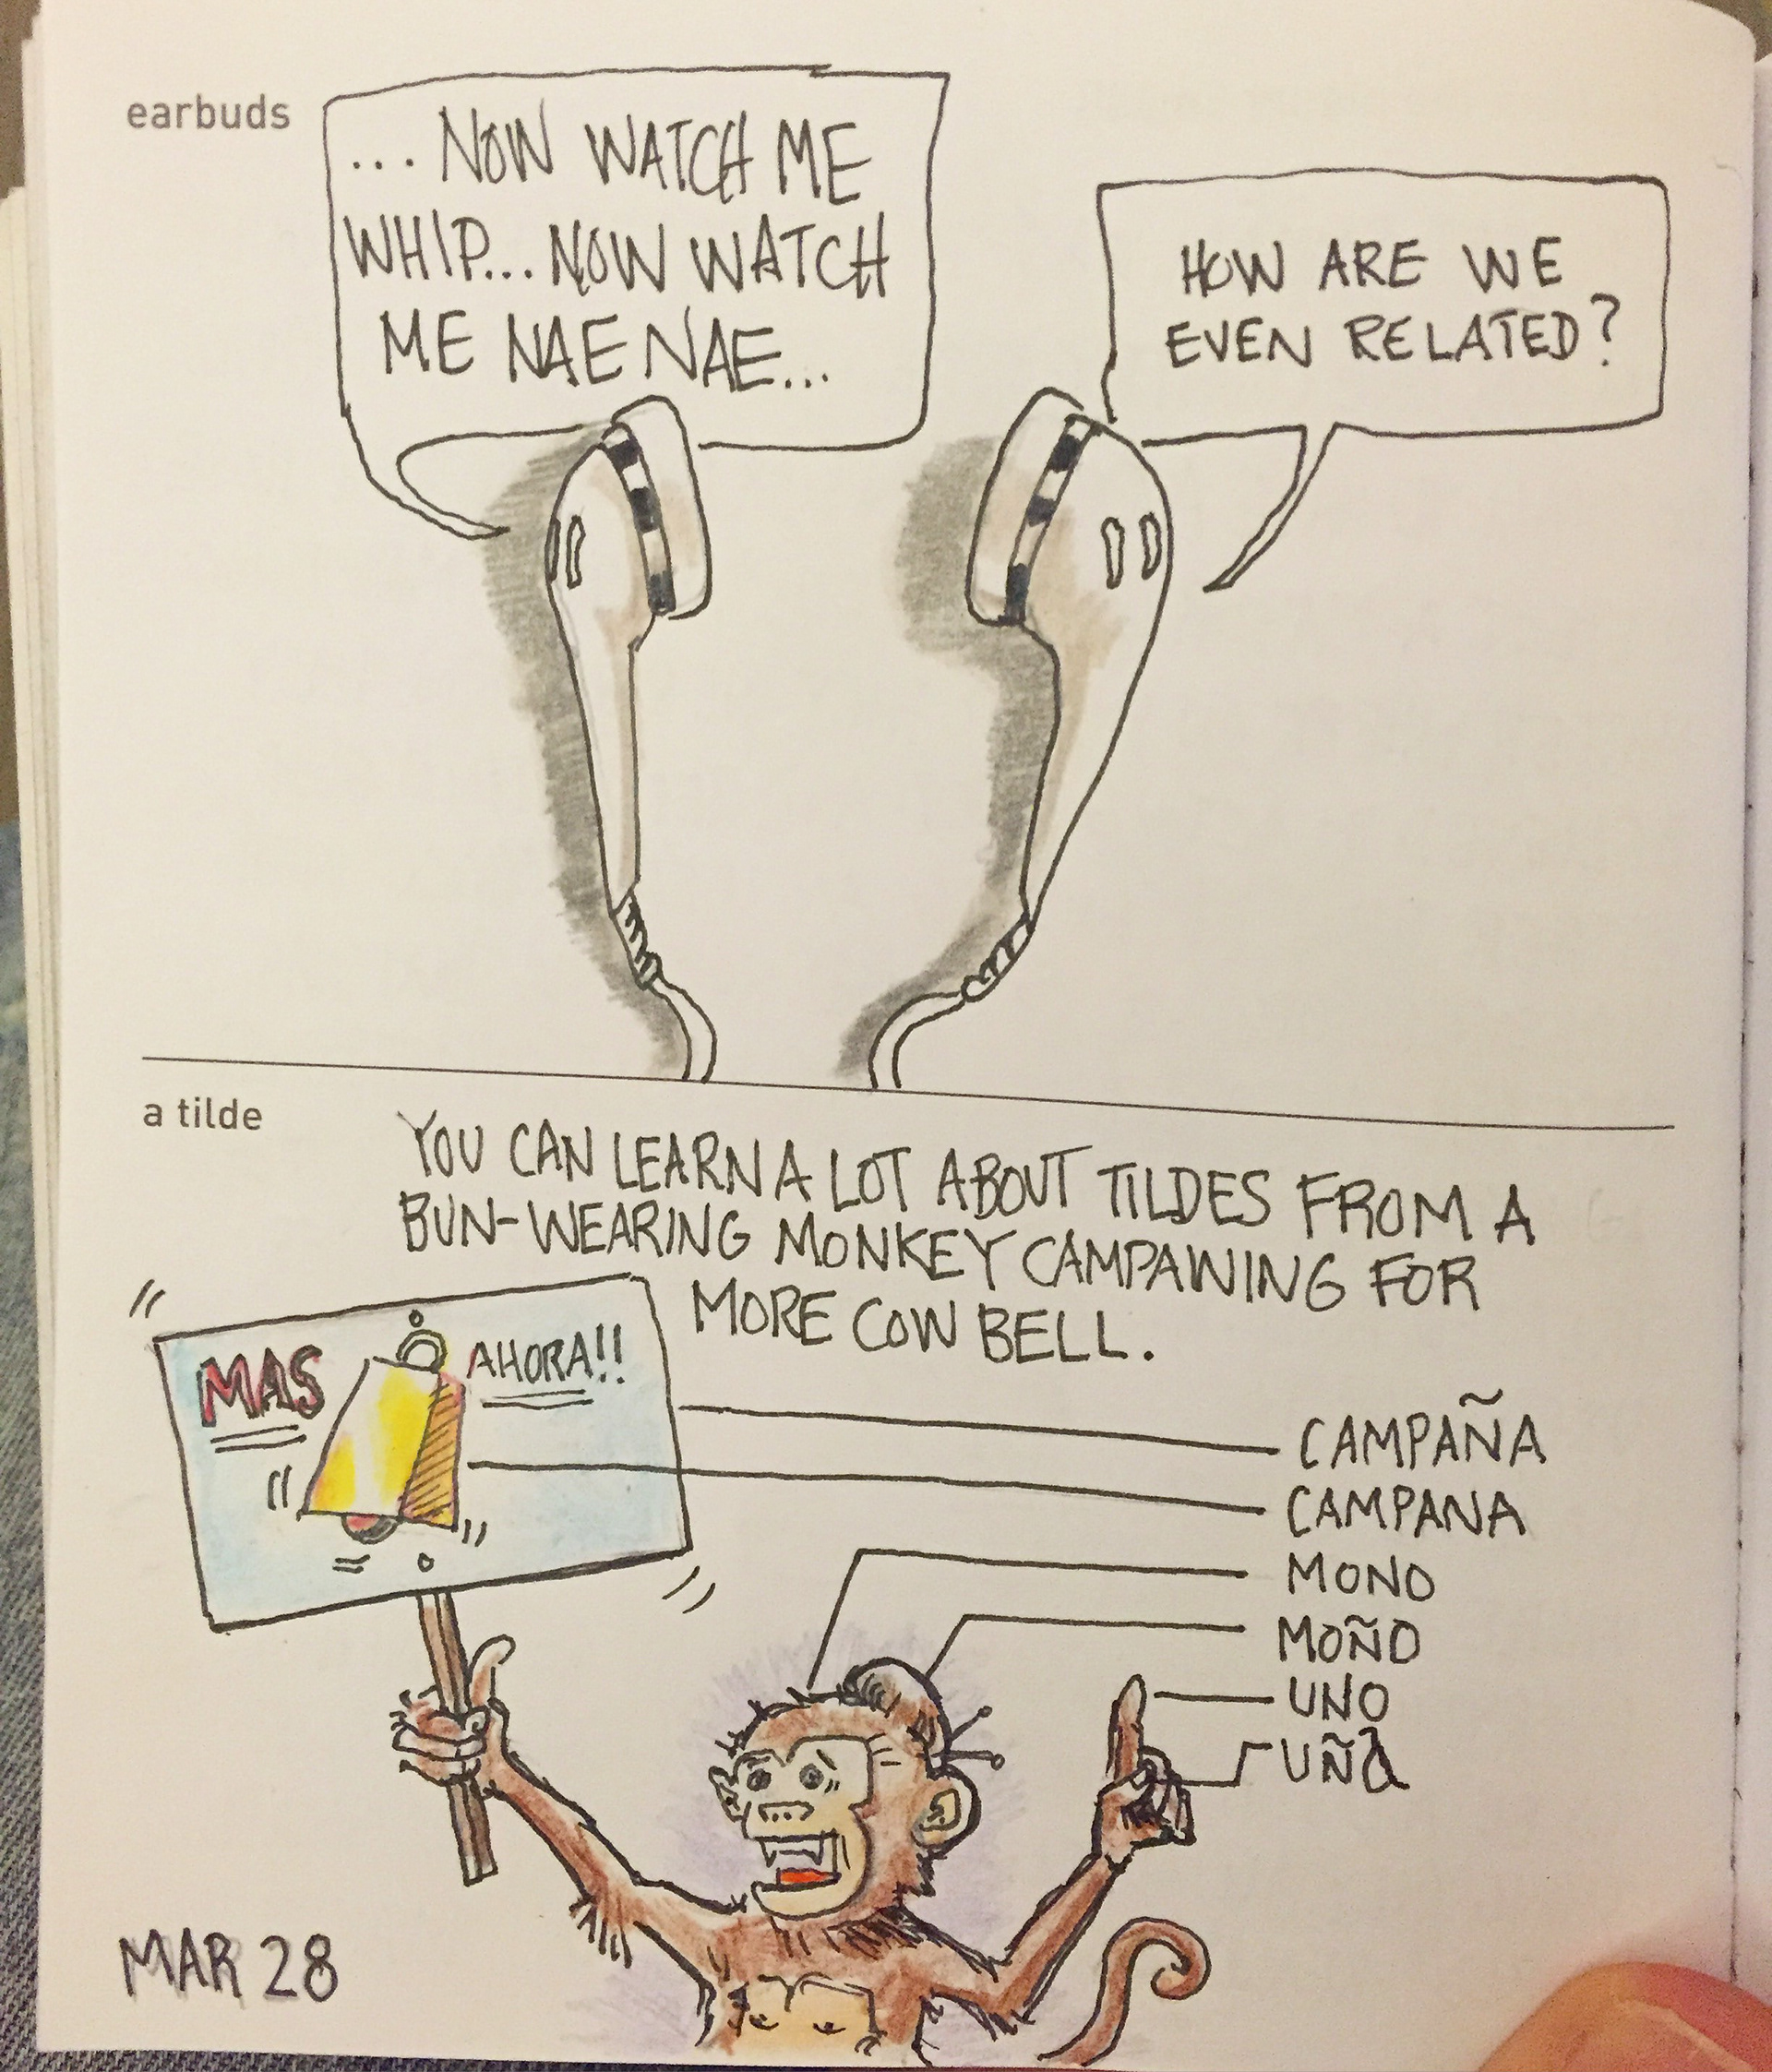 earbuds
... NOW WATCH ME
WHIP... NOW WATCH
ME NAE NAE...
HOW ARE WE
EVEN RELATED?
a tilde
YOU CAN LEARN A LOT ABOUT TILDES FROM A
BUN-WEARING MONKEY CAMPAWING FOR
MORE COW BELL.
MAS
AHORA!!
CAMPAÑA
CAMPANA
MONO
MOÑO
UNO
UÑA
MAR 28